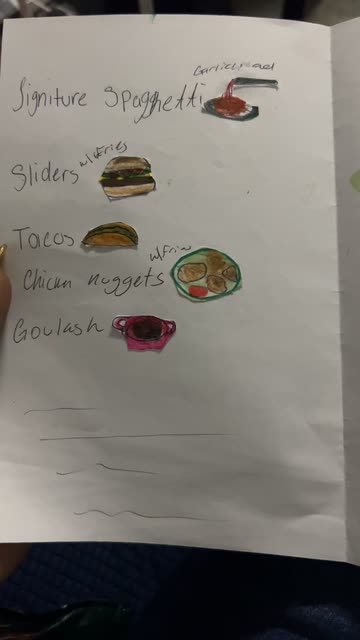 Garlic bread
Signiture Spaghetti
w/ Fries
Sliders
Tacos
w/ Fries
Chicken nuggets
Goulash